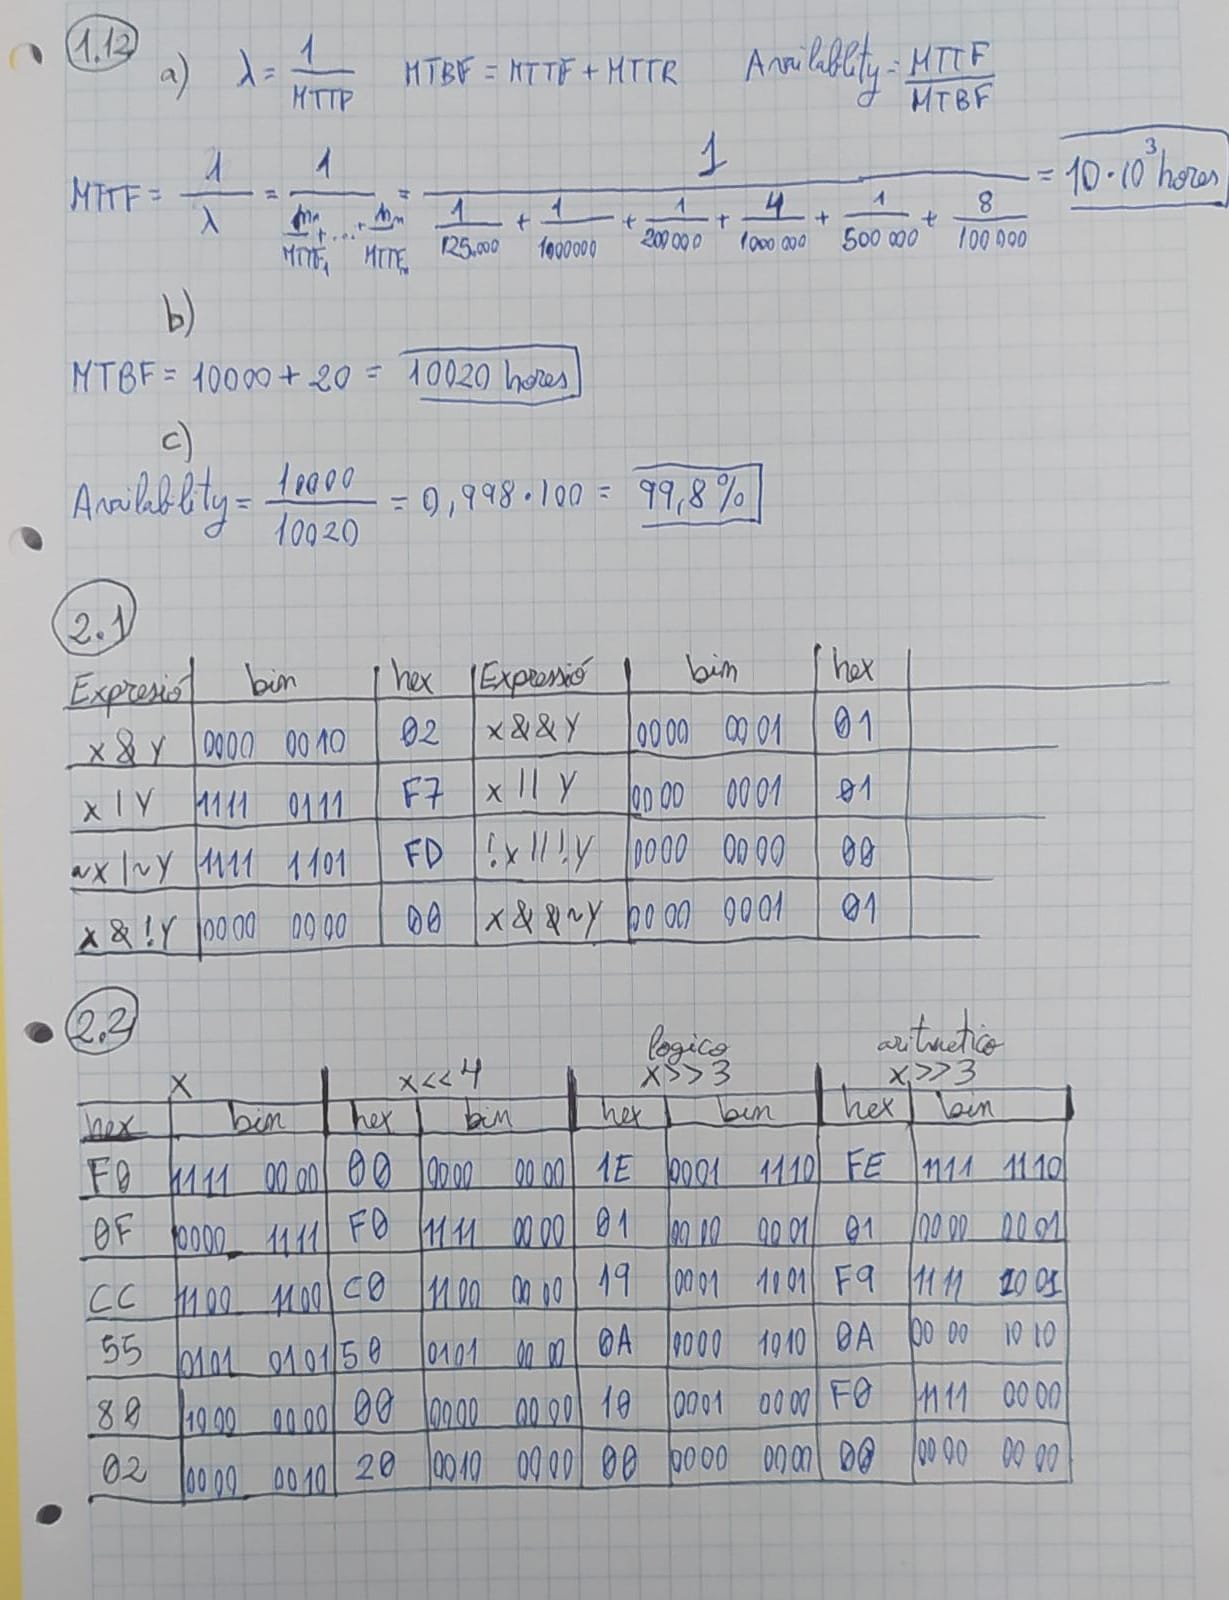 1.12
a) λ = 1/MTTF MTBF = MTTF + MTTR Availablity = MTTF/MTBF
MTTF = 1/λ = 1/(m₁/MTTF₁ + ... + mₙ/MTTFₙ) = 1/(1/125.000 + 1/1000000 + 1/200000 + 4/1000000 + 1/500000 + 8/100000) = 10·10³ hores
b)
MTBF = 10000 + 20 = 10020 hores
c)
Availablity = 10000/10020 = 0,998·100 = 99,8%
2.1
Expresió bin hex Expressió bin hex
x & Y 0000 0010 02 x && Y 0000 0001 01
x | Y 1111 0111 F7 x || Y 0000 0001 01
~x | ~Y 1111 1101 FD !x || !Y 0000 0000 00
x & !Y 0000 0000 00 x && ~Y 0000 0001 01
2.2
x x<<4 logico x>>3 aritmetico x>>3
hex bin hex bin hex bin hex bin
F0 1111 0000 00 0000 0000 1E 0001 1110 FE 1111 1110
0F 0000 1111 F0 1111 0000 01 0000 0001 01 0000 0001
CC 1100 1100 C0 1100 0000 19 0001 1001 F9 1111 1001
55 0101 0101 50 0101 0000 0A 0000 1010 0A 0000 1010
80 1000 0000 00 0000 0000 10 0001 0000 F0 1111 0000
02 0000 0010 20 0010 0000 00 0000 0000 00 0000 0000